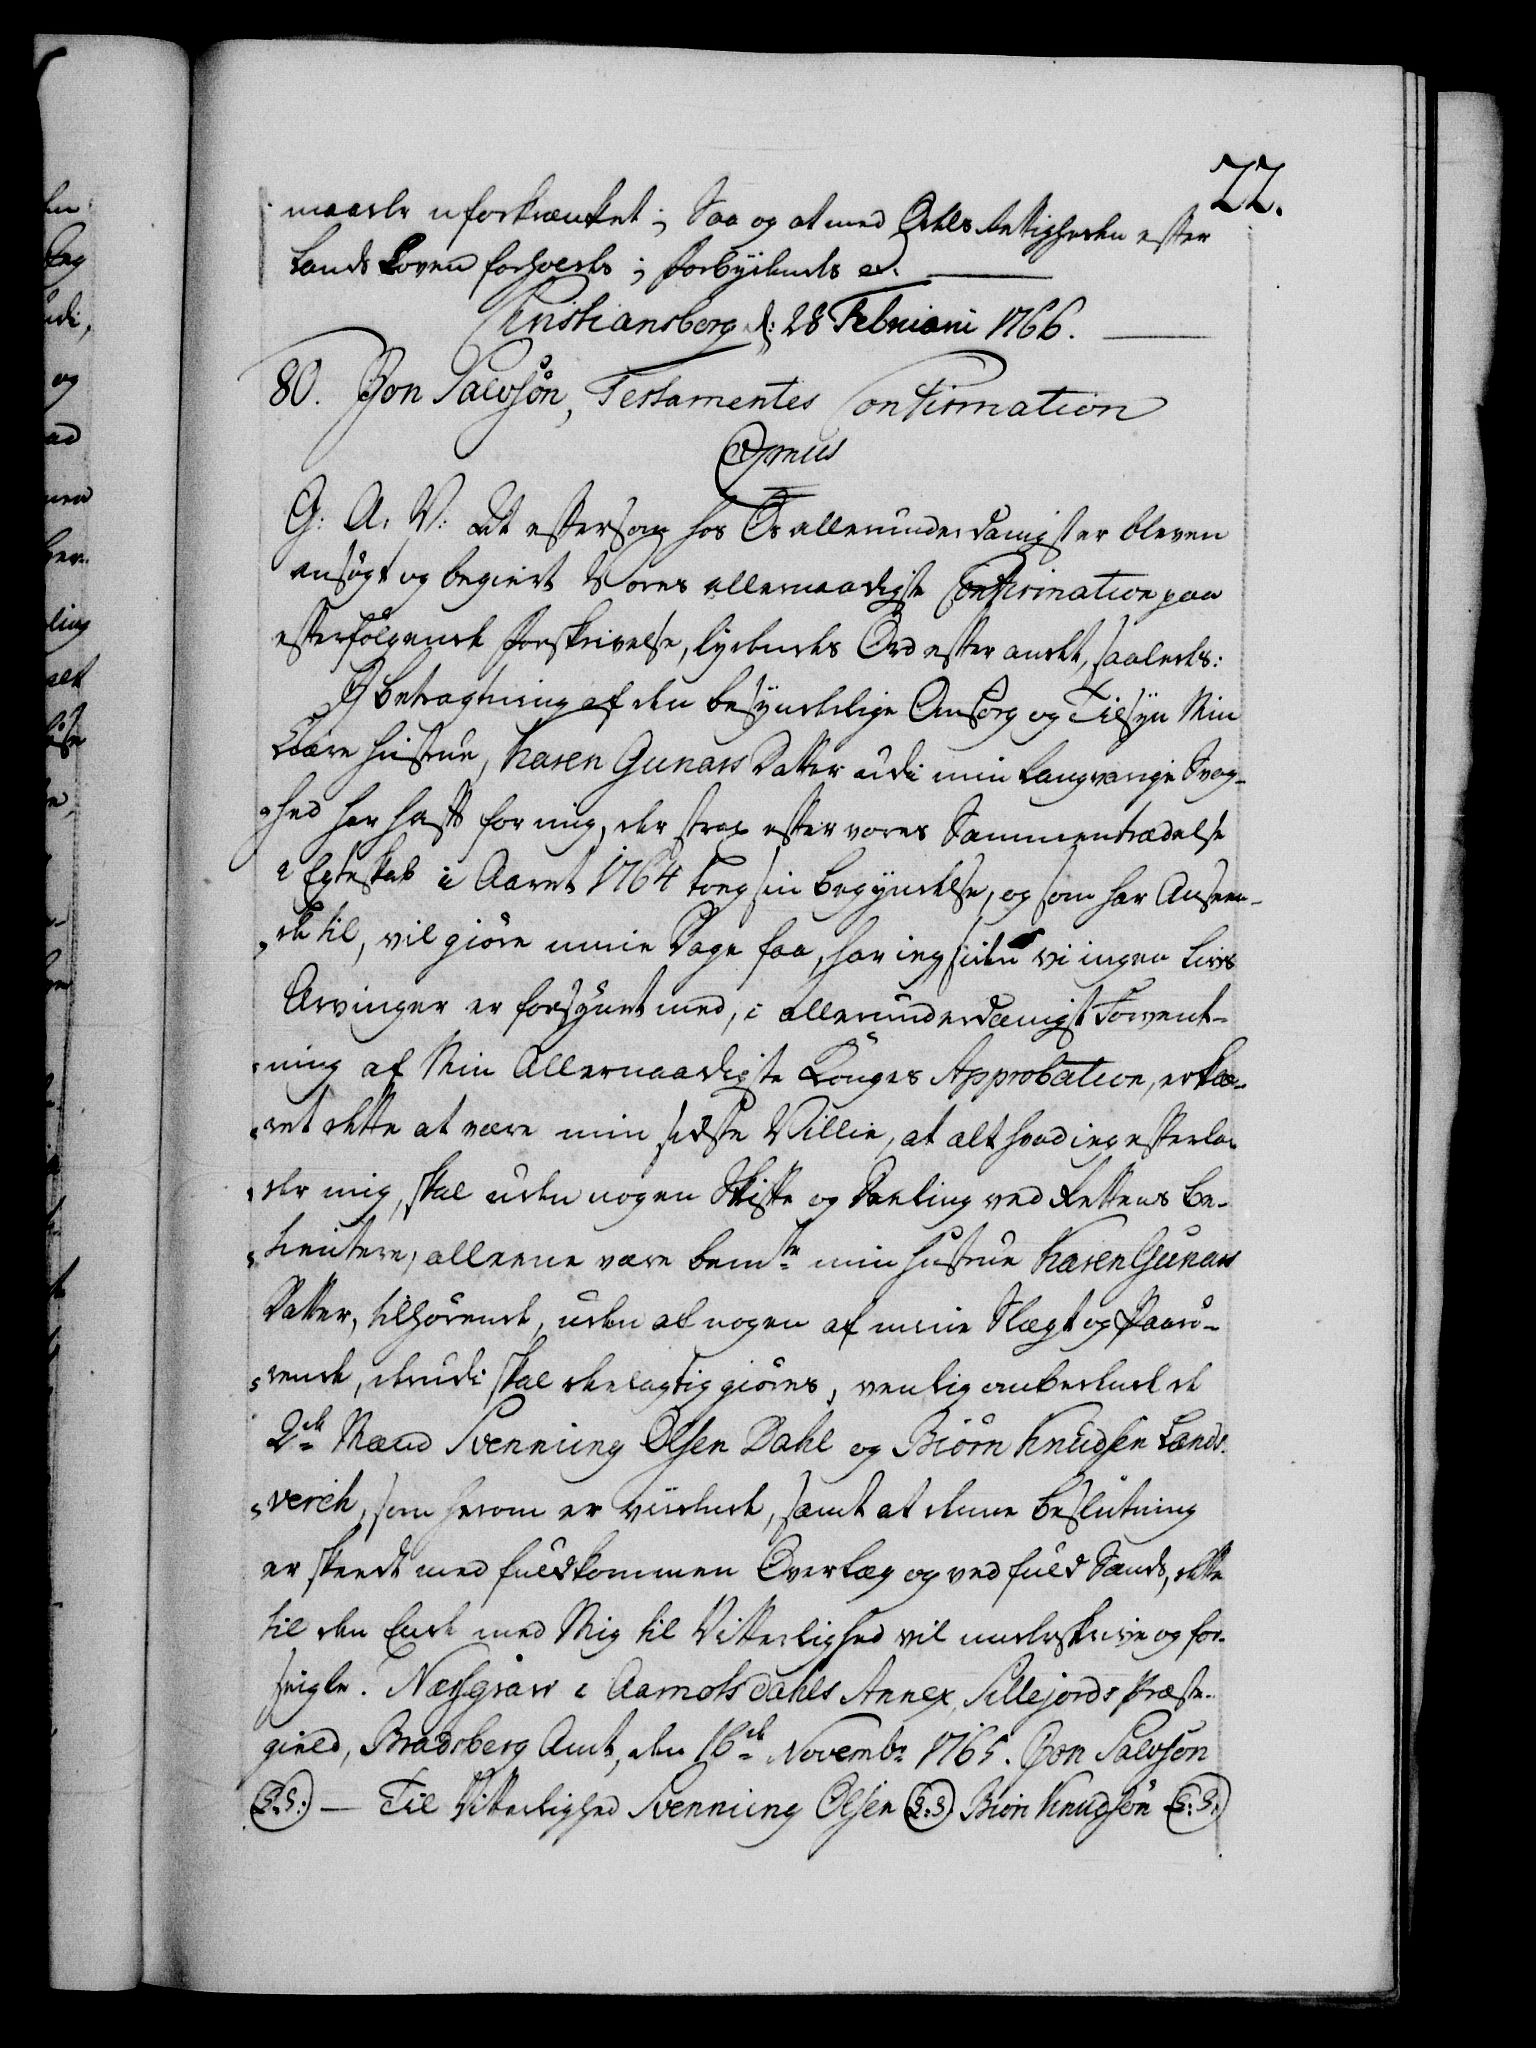 22.
maade uforkrænket; Saa og at med Odels Rettigheden efter
Lands Loven forholdes; forbydendes &.
Christiansborg d: 28 Februarii 1766.
80. Jon Salvesøn, Testamentes Confirmation
Gratis
G: A: V: At eftersom hos Os allerunderdanigst er bleven
ansøgt og begiert Vores allernaadigste Confirmation paa
efterfølgende Forskrivelse, lydendes Ord efter andet, saaledes:
I betragtning af den besynderlige Omsorg og Tilsyn Min
Kiære Hustrue, Karen Gunars Datter udi min langvarige Svag-
hed har hafft for mig, der strax efter vores Sammentrædelse
i Egteskab i Aaret 1764 tog sin begyndelse, og som har Anseen-
de til, vil giøre mine Dage faa, har ieg, siden vi ingen Livs
Arvinger er forsynet med, i allerunderdanigst Forvent-
ning af Min Allernaadigste Konges Approbation, erklæ-
ret dette at være min sidste Villie, at alt hvad ieg efterla-
der mig, skal uden nogen Skifte og Deeling ved Rettens be-
tientere, alleene være bemte min Hustrue Karen Gunars
Datter, tilhørende, uden at nogen af mine Slægt og Paarø-
rende, derudi skal deelagtig giøres, venlig ombedende de
2de Mænd Svenning Olsen Dahl og Biørn Knudsen Lands-
verch, som herom er vidende, samt at denne beslutning
er skeedt med fuldkommen Overlæg og ved fuld Sands, dette
til den Ende med Mig til Vitterlighed vil underskrive og for-
seigle. Næsgrav i Aamotsdahls Annex, Sillejords Præste-
gield, Bradsberg Amt, den 16de Novembr 1765. Jon Salvson
(L.S.) — Til Vitterlighed Svenning Olsen (L:S) Biørn Knudsøn (L:S:)